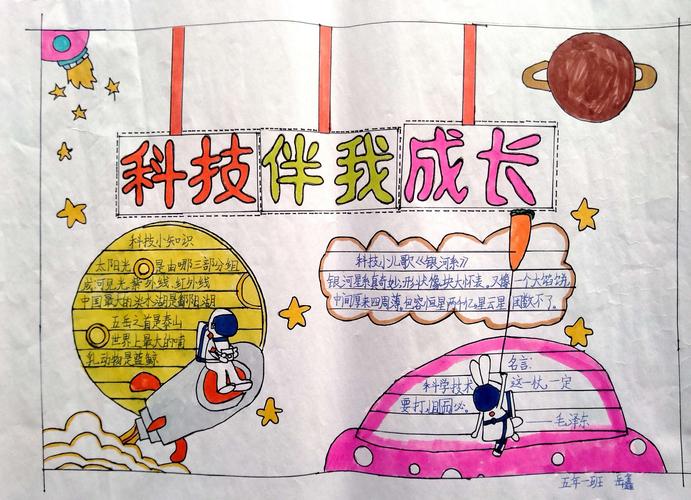 科技伴我成长
科技小知识
太阳光是由哪三部分组
成可见光、紫外线、红外线
中国最大的淡水湖是鄱阳湖
五岳之首是泰山
世界上最大的哺
乳动物是蓝鲸
科技小儿歌《银河系》
银河星系真奇妙,形状像块大怀表。又像一个大馅饼,
中间厚来四周薄。包容恒星两千亿,星云星团数不了。
名言:
科学技术这一杖,一定
要打,且必。
——毛泽东
五年一班 岳鑫